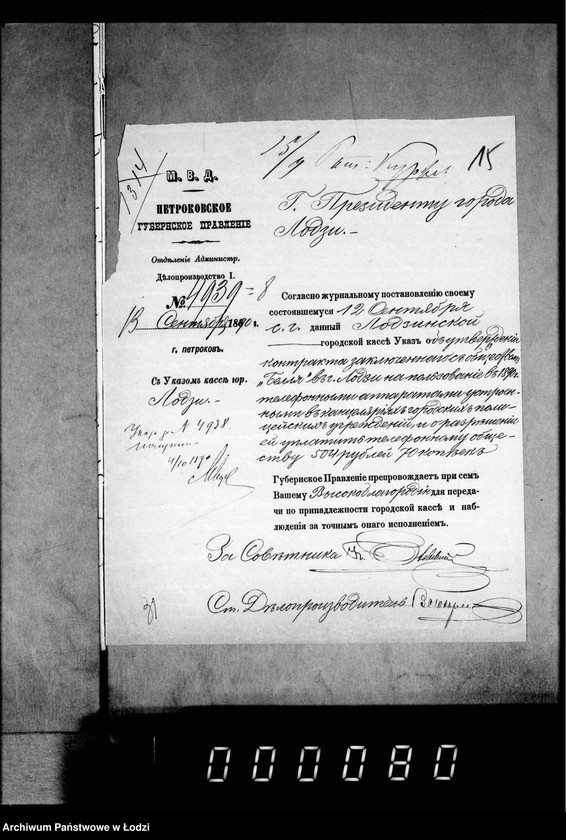 15
1314
М. В. Д.
ПЕТРОКОВСКОЕ
ГУБЕРНСКОЕ ПРАВЛЕНІЕ
Отдѣленіе Администр.
Дѣлопроизводство I.
№ 4939
13 Сентября 1890 г.
г. ПЕТРОКОВЪ.
Съ Указомъ кассѣ гор.
Лодзи.-
Указ за № 4938
4/10 1890
Г. Президенту города
Лодзи.-
Согласно журнальному постановленію своему
состоявшемуся 12 Сентября
с. г. данный Лодзинской
городской кассѣ Указъ объ утвержденіи
контракта заключеннаго съ обществомъ
„Белля" въ г. Лодзи на пользованіе въ 1890 г.
телефонными аппаратами устроен-
ными въ канцеляріяхъ городскихъ поли-
цейскихъ учрежденій, и о разрѣшеніи
ей уплатить телефонному обще-
ству 504 рублей 70 копѣекъ
Губернское Правленіе препровождаетъ при семъ
Вашему Высокоблагородію для переда-
чи по принадлежности городской кассѣ и наб-
людения за точнымъ онаго исполненіемъ.
За Совѣтника
Ст. Дѣлопроизводитель
000080
Archiwum Państwowe w Łodzi